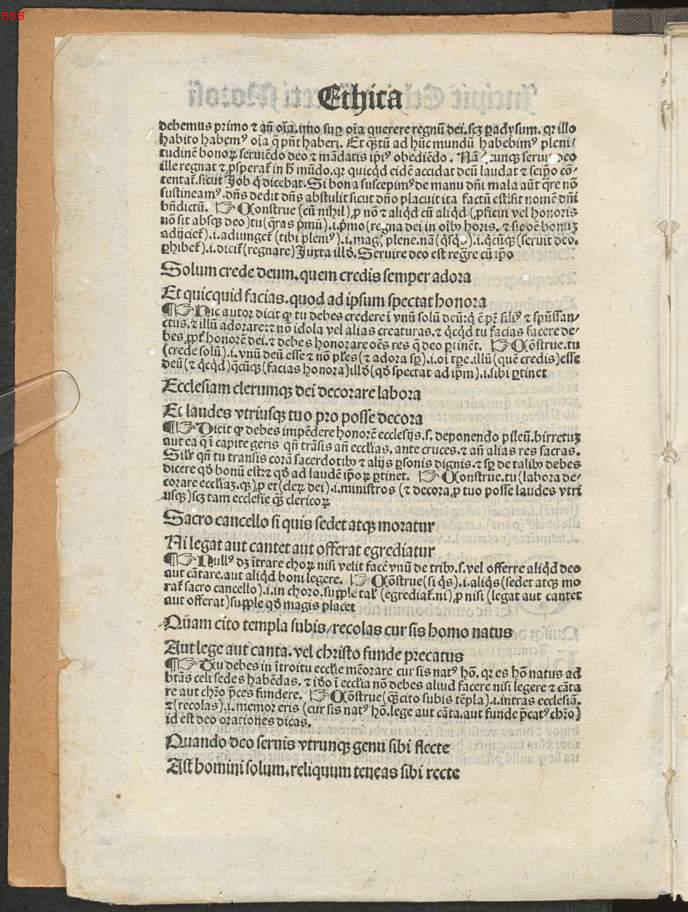 BSB
Ethica
debemus primo ⁊ añ oĩa.imo suꝑ oĩa querere regnũ dei.scꝫ ꝑadysum. qꝛ illo
habito habemꝰ oĩa q̃ pñt haberi. Et qꝫtũ ad hũc mundũ habebimꝰ pleni/
tudinẽ bonoꝝ seruiẽdo deo ⁊ mãdatis ip̃iꝰ obediẽdo. Nã seruit deo
ille regnat ⁊ ꝓsperat̃ in h̃ mũdo.qꝛ quicqd eidẽ accidat deũ laudat ⁊ seip̃o cõ-
tentat̃.sicut Job q̃ dicebat.Si bona suscepimꝰ de manu dñi mala aũt q̃re nõ
sustineamꝰ.dñs dedit dñs abstulit sicut dño placuit ita factũ est:sit nomẽ dñi
bñdictũ. ☞ Cõnstrue (cũ nihil).ꝓ nõ ⁊ aliqd cũ aliqd (ꝓficin vel honoris
nõ sit absqꝫ deo) tu (q̃ras p̃mũ).i.p̃mo (regna dei in oĩbꝰ horis. ⁊ sic oẽ bonuꝫ
adijciet̃).i.adiunget̃ (tibi plenꝰ).i.mag̃ plene.nã (q̃sqꝰ).i.q̃cũqꝫ (seruit deo.
ꝑhibet̃).i.dicit̃ (regnare) Juxta illð. Seruire deo est regre cũ ip̃o
Solum crede deum.quem credis semper adora
Et quicquid facias.quod ad ipsum spectat honora
¶☞ Hic autor dicit ꝙ tu debes credere ĩ vnũ solũ deũ:q̃ ẽ p̃r filiꝰ ⁊ sp̃ussan-
ctus.⁊ illũ adorare:⁊ nõ idola vel alias creaturas.⁊ qcqd tu facias facere de-
bes.ꝓpt̃ honorẽ dei.⁊ debes honorare oẽs res q̃ deo ꝑtinẽt. ☞ Cõstrue.tu
(crede solũ).i.vnũ deũ esse ⁊ nõ pl̃es (⁊ adora sꝑ).i.oĩ tꝑe.illũ (quẽ credis) esse
deũ (⁊ qcqd) q̃cũqꝫ (facias honora) illð (qð spectat ad ip̃m).i.sibi ꝑtinet
Ecclesiam clerumqꝫ dei decorare labora
Et laudes vtriusqꝫ tuo pro posse decora
¶☞ Dicit ꝙ debes impẽdere honorẽ ecclesijs.s.deponendo pileũ.birretuꝫ
aut ea q̃ ĩ capite geris qñ trãsis añ eccl̃ias.ante cruces.⁊ añ alias res sacras.
Sil̃r qñ tu transis corã sacerdotibꝰ ⁊ alijs ꝑsonis dignis.⁊ sꝑ de talibꝰ debes
dicere qð bonũ est:⁊ qð ad laudẽ ip̃oꝝ ꝑtinet. ☞ Cõnstrue.tu (labora de-
corare eccl̃iaꝫ.qꝫ).ꝓ et (cleꝝ dei).i.ministros (⁊ decora.ꝓ tuo posse laudes vtri
usqꝫ) scꝫ tam ecclesie q̃ clericoꝝ
Sacro cancello si quis sedet atqꝫ moratur
Ni legat aut cantet aut offerat egrediatur
¶☞ Nullꝰ dꝫ ĩtrare choꝝ nisi velit facẽ vnũ de tribꝰ.s.vel offerre aliqd deo
aut cãtare.aut aliqd boni legere. ☞ Cõstrue (si q̃s).i.aliq̃s (sedet atqꝫ mo
rat̃ sacro cancello).i.in choro.supple tal̃ (egrediat̃.ni).ꝓ nisi (legat aut cantet
aut offerat) supple qð magis placet
Qũam cito templa subis/recolas cur sis homo natus
Aut lege aut canta.vel christo funde precatus
¶☞ Tu debes in ĩtroitu eccl̃ie mẽorare cur sis natꝰ hõ.qꝛ es hõ natus ad
btãs celi sedes habẽdas.⁊ iðo ĩ eccl̃ia nõ debes aliud facere nisi legere ⁊ cãta
re aut chr̃o p̃ces fundere. ☞ Cõstrue (q̃ꝫcito subis tẽpla).i.intras ecclesiã.
⁊ (recolas).i.memor eris (cur sis natꝰ hõ.lege aut cãta.aut funde p̃catꝰ chr̃o)
id est deo orationes dicas.
Quando deo seruis vtrunqꝫ genu sibi flecte
Ast homini solum.reliquum teneas sibi recte